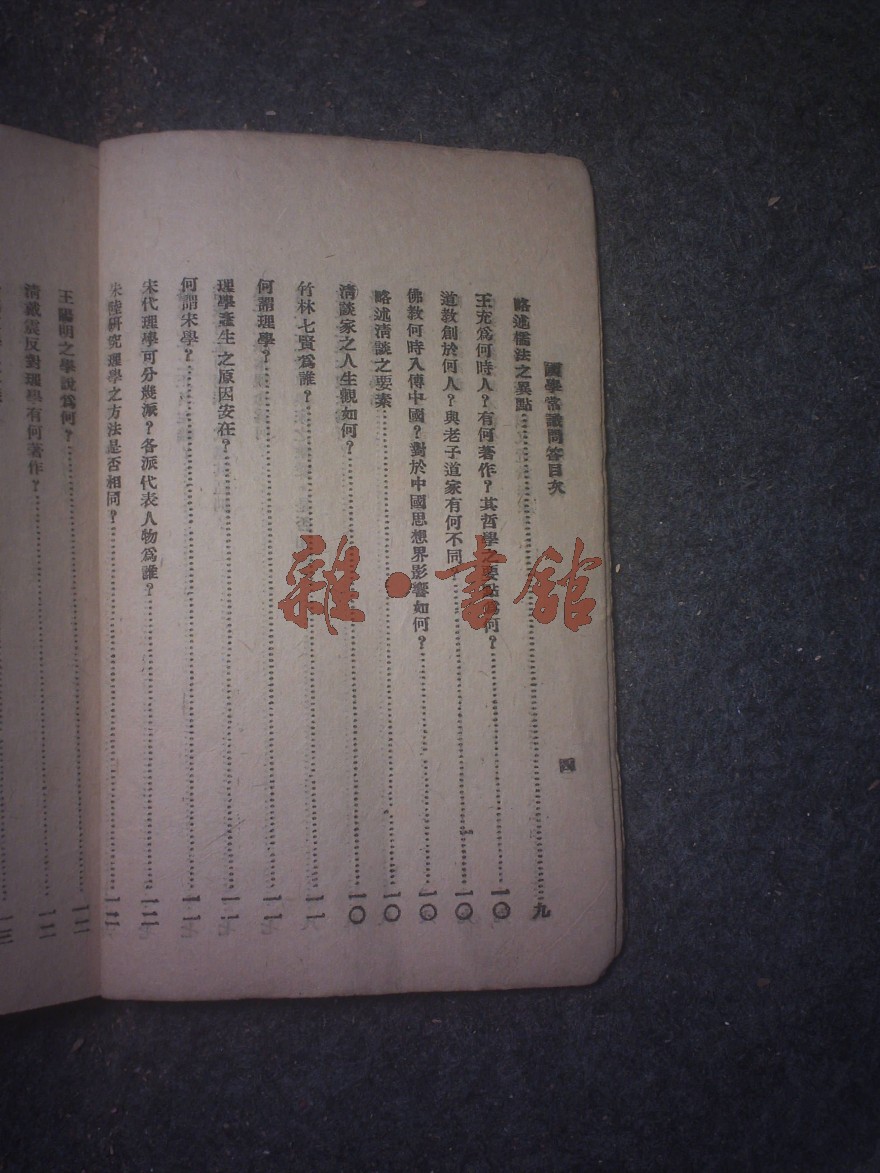 國學常識問答目次
四
略述儒法之異點……九
王充爲何時人？有何著作？其哲學之要點爲何？……一〇
道教創於何人？與老子道家有何不同？……一〇
佛教何時入傳中國？對於中國思想界影響如何？……一〇
略述清談之要素……一〇
清談家之人生觀如何？……一〇
竹林七賢爲誰？……一一
何謂理學？……一一
理學產生之原因安在？……一一
何謂宋學？……一一
宋代理學可分幾派？各派代表人物爲誰？……一二
朱陸研究理學之方法是否相同？……一二
王陽明之學說爲何？……一二
清戴震反對理學有何著作？……一二
雜·書館